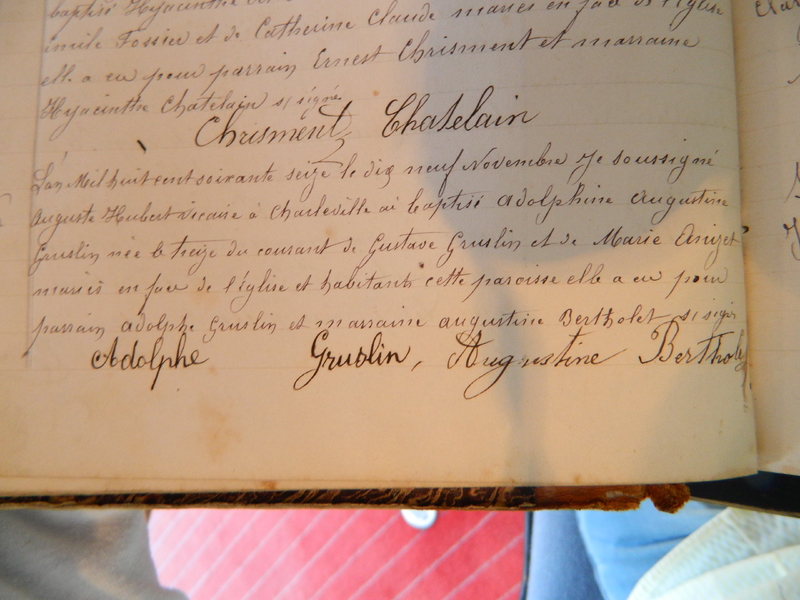 baptisé Hyacinthe
Emile Fossier et de Catherine Claude mariés en face de l'église
elle a eu pour parrain Ernest Chrisment et marraine
Hyacinthe Chatelain si signé
Chrisment Chatelain
L'an Mil huit cent soixante seize le dix neuf Novembre Je soussigné
Auguste Hubert vicaire à Charleville ai baptisé Adolphine Augustine
Gruslin née le treize du courant de Gustave Gruslin et de Marie Anizet
mariés en face de l'église et habitants cette paroisse elle a eu pour
parrain Adolphe Gruslin et marraine augustine Bertholet si signé
Adolphe Gruslin, Augustine Berthol